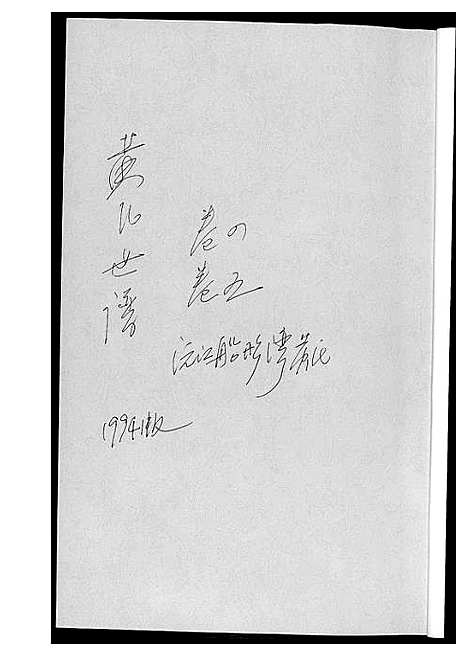 黄氏世譜
卷四
卷五
沅江船形湾黄氏
1994版